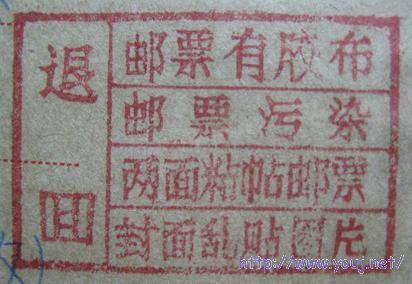 退回
邮票有胶布
邮票污染
两面粘帖邮票
封面乱贴图片
http://www.youj.net/